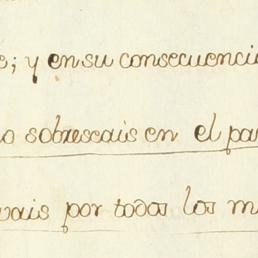 ; y en su consecuenci
o sobreseais en el pa
vais por todos los m